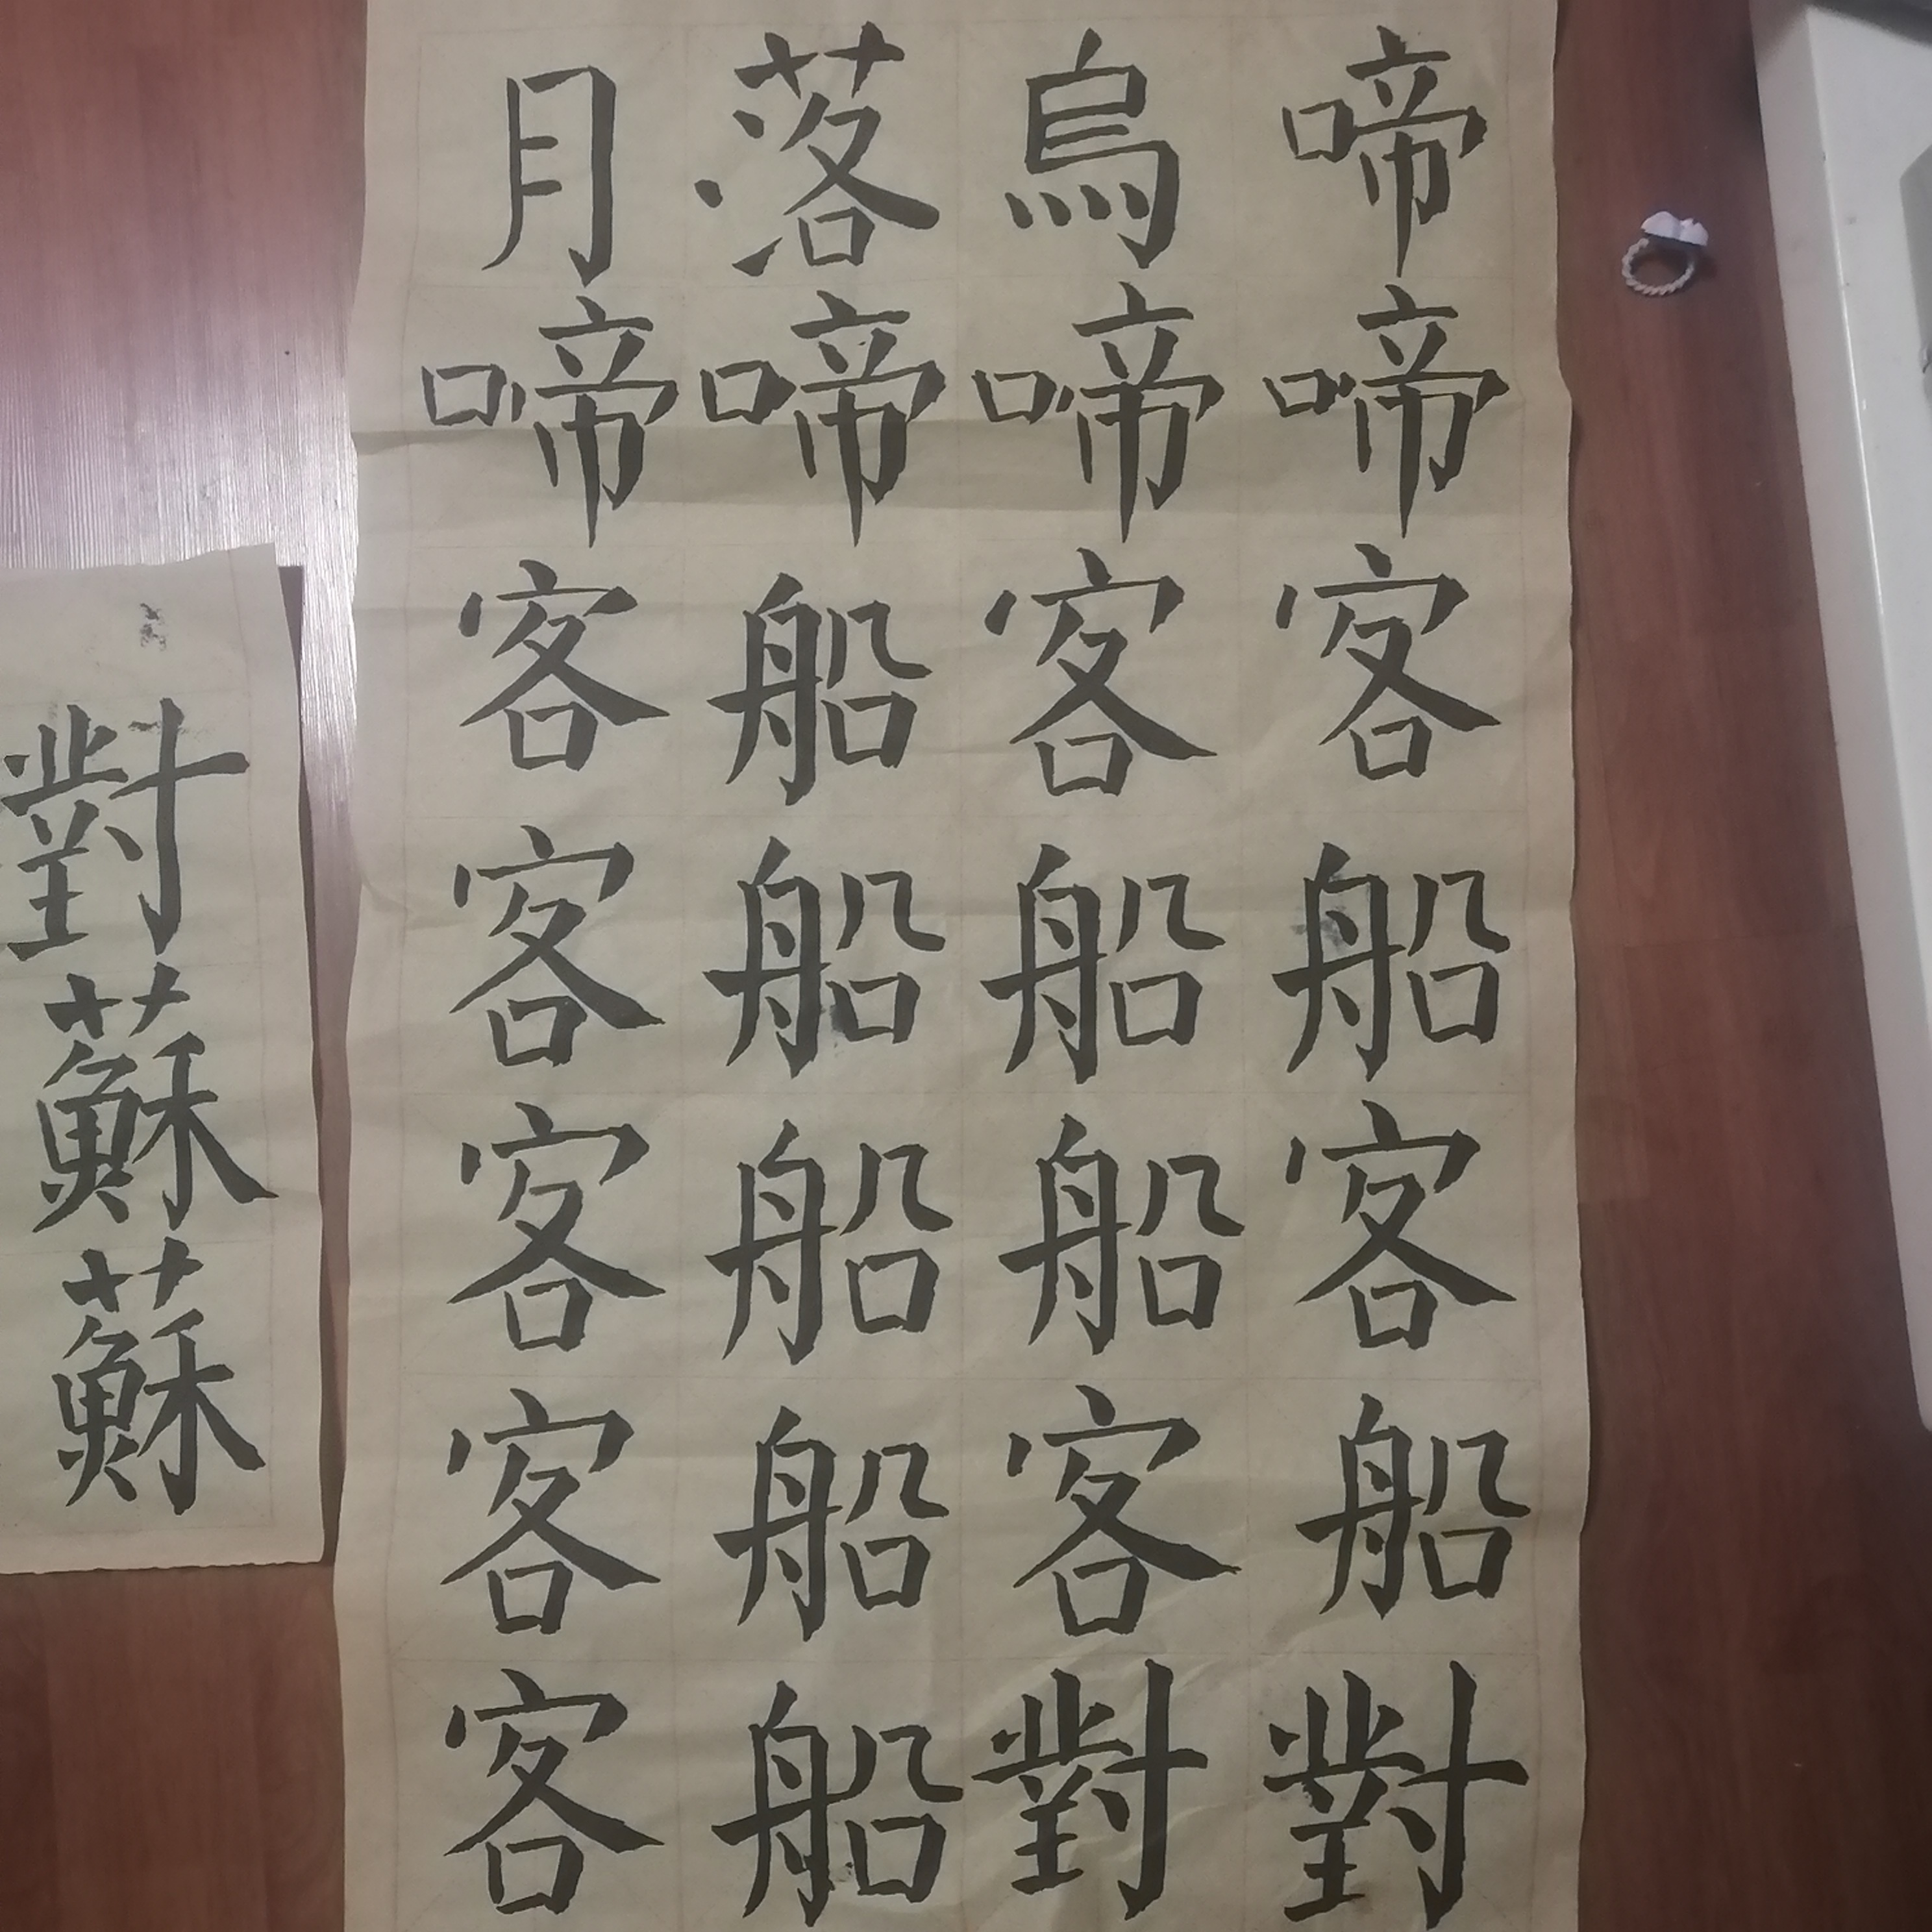 月落烏啼
啼啼啼啼
客船客客
客船船船
客船船客
客船客船
客船對對
對
蘇
蘇